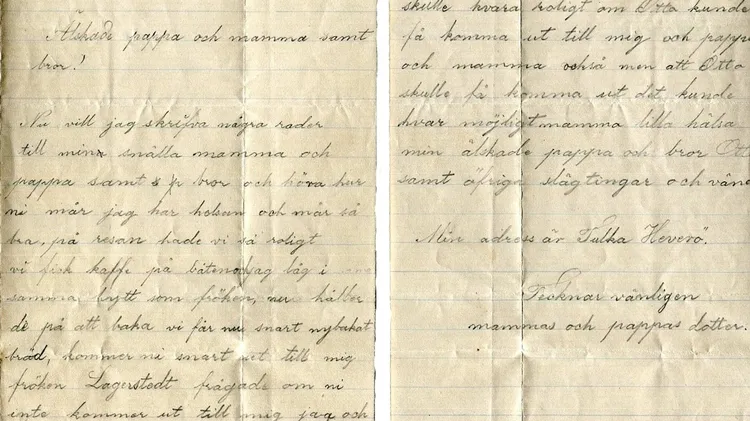 Älskade pappa och mamma samt
bror!
Nu vill jag skrifva några rader
till min snälla mamma och
pappa samt bror och höva hur
ni mår jag har helsan och mår så
bra, på resan hade vi så roligt
vi fick kaffe på båten och jag låg i
samma hytt som fröken, nu håller
de på att baka vi får nu snart nybakat
bröd, kommer ni snart ut till mig
fröken Lagerstedt frågade om ni
inte kommer ut till mig jag och
skulle kvara roligt om Otto kunde
få komma ut till mig och pappa
och mamma också men att Otto
skulle få komma ut det kunde
hvar möjligt mamma lilla hälsa
min älskade pappa och bror Ott
samt öfriga slägtingar och vänn
Min adress är Tulka Heverö.
Tecknar vänligen
mammas och pappas dotter.